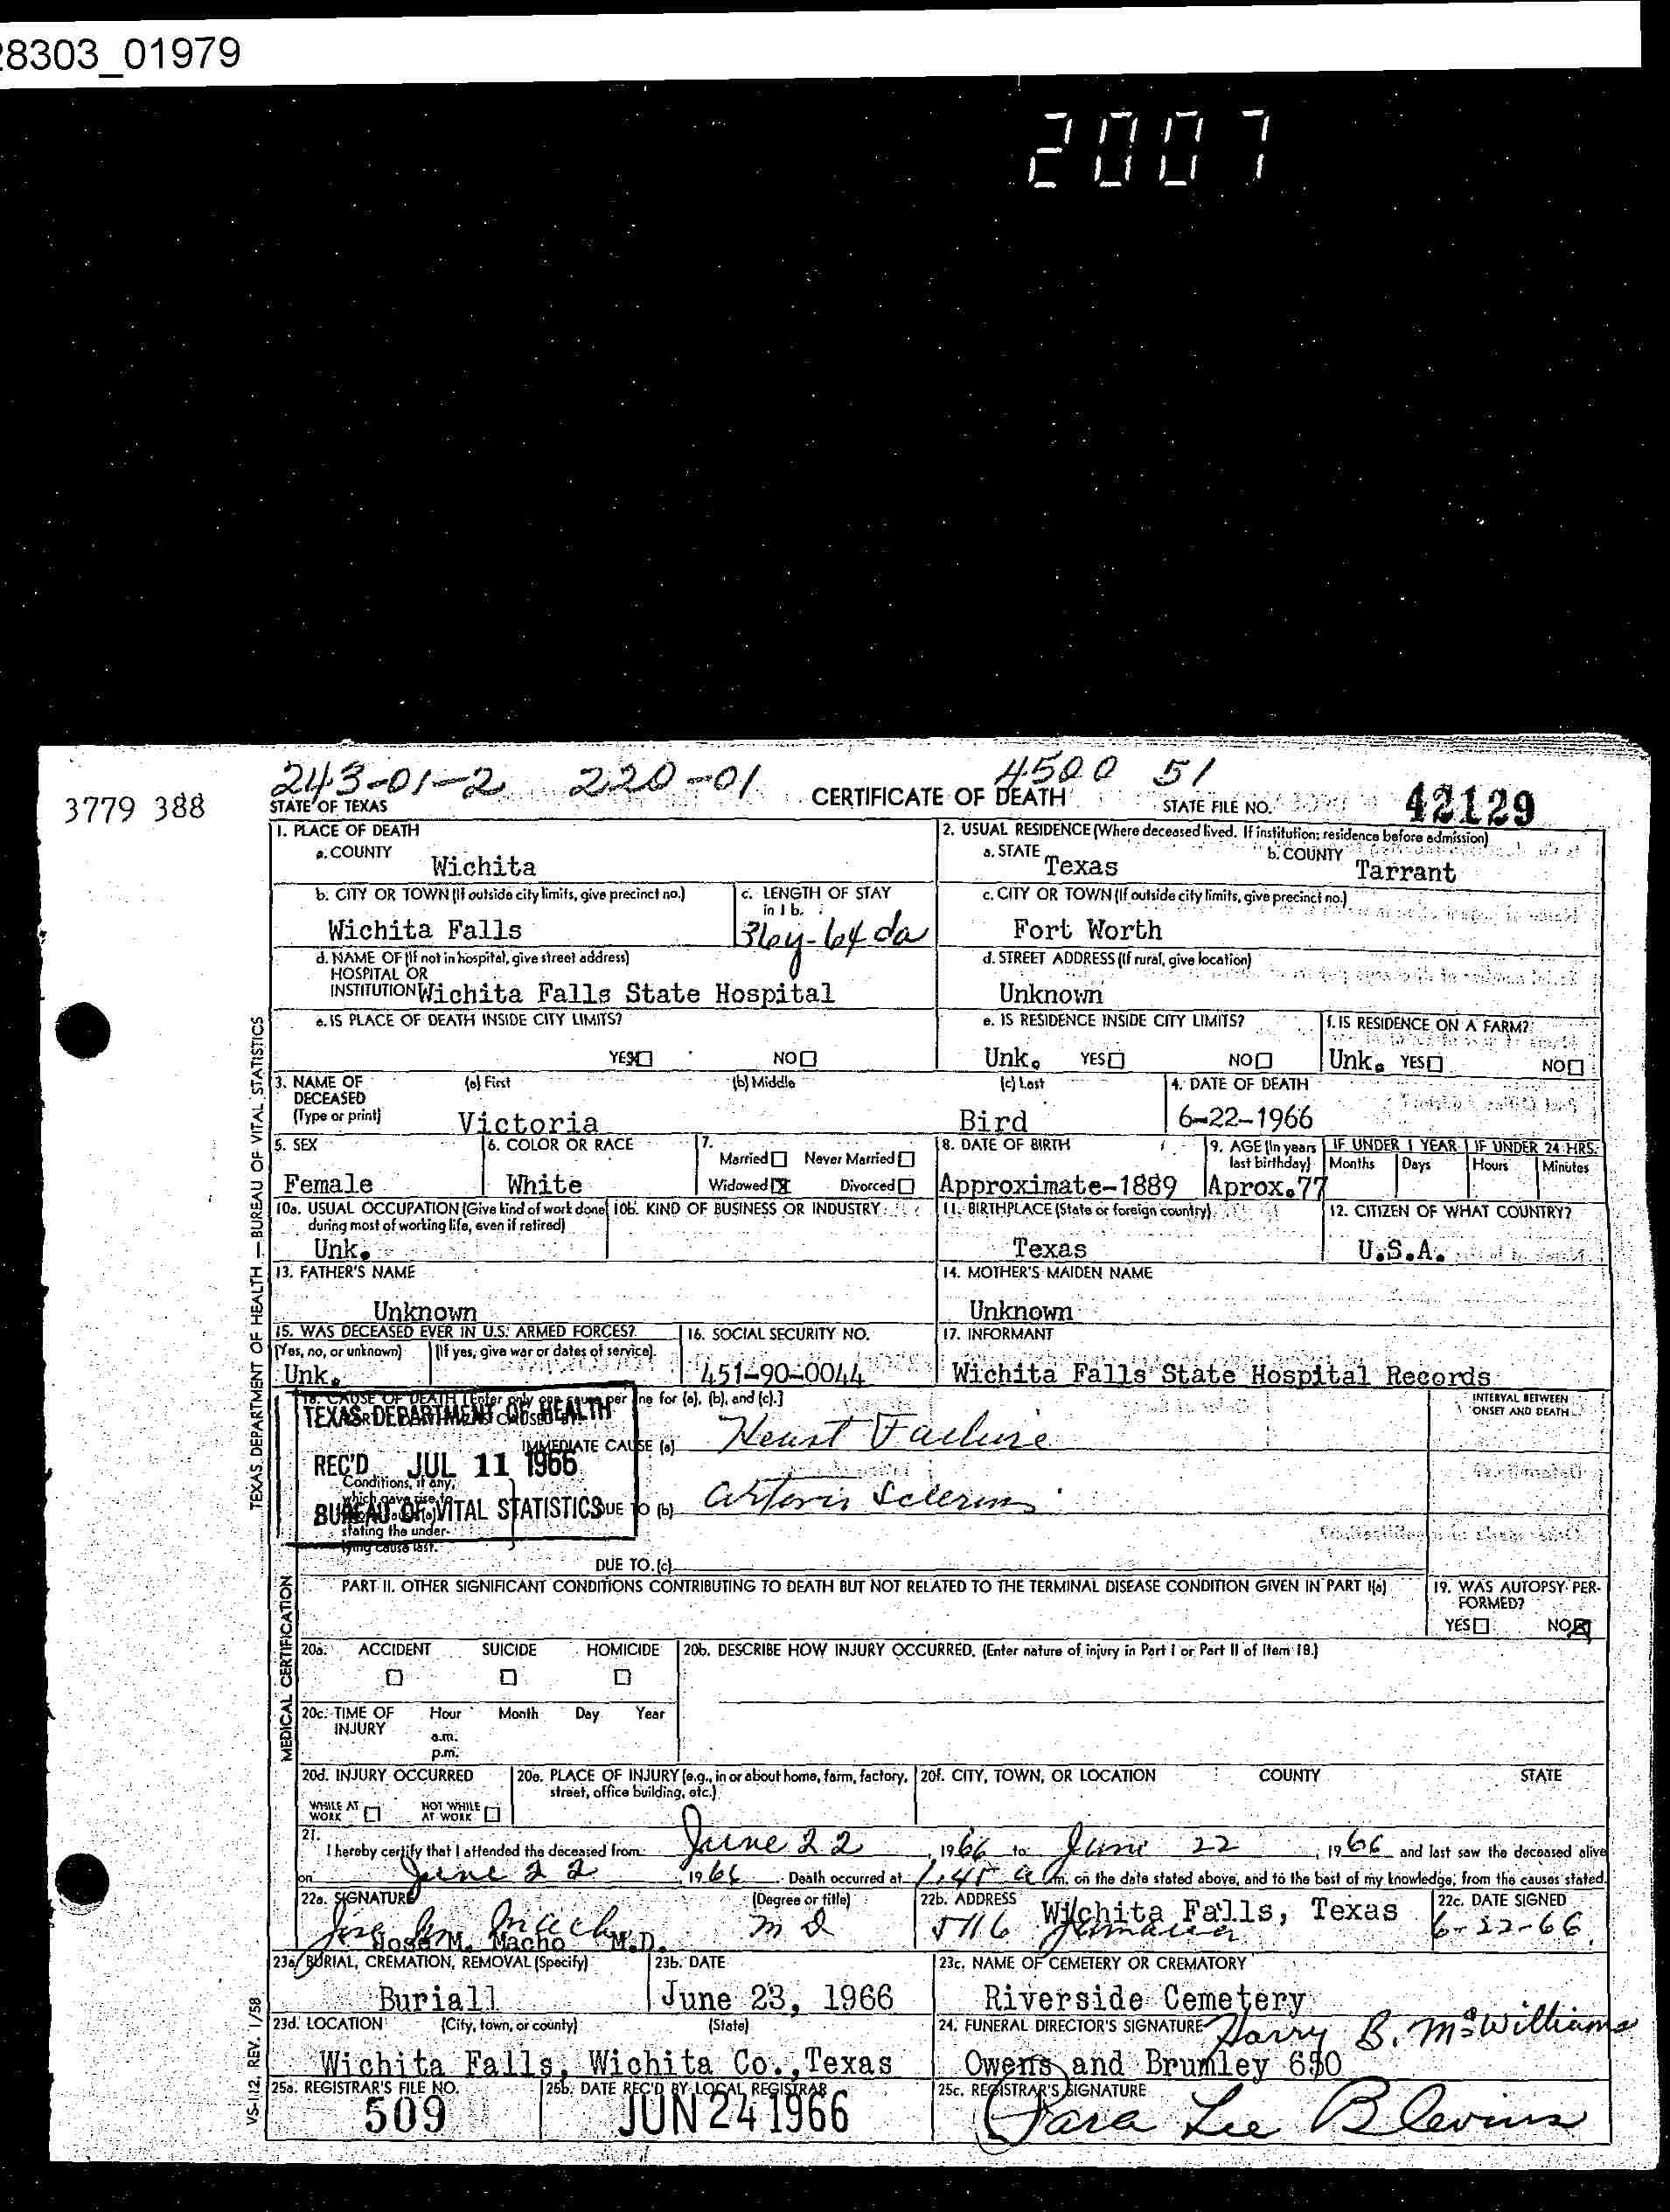 28303_01979
2007
243-01-2 220-01 4500 51
3779 388
STATE OF TEXAS CERTIFICATE OF DEATH STATE FILE NO. 42129
1. PLACE OF DEATH 2. USUAL RESIDENCE (Where deceased lived. If institution: residence before admission)
a. COUNTY Wichita a. STATE Texas b. COUNTY Tarrant
b. CITY OR TOWN (If outside city limits, give precinct no.) c. LENGTH OF STAY in 1 b. c. CITY OR TOWN (If outside city limits, give precinct no.)
Wichita Falls 36y-64 da Fort Worth
d. NAME OF (If not in hospital, give street address) d. STREET ADDRESS (If rural, give location)
HOSPITAL OR
INSTITUTION Wichita Falls State Hospital Unknown
e. IS PLACE OF DEATH INSIDE CITY LIMITS? e. IS RESIDENCE INSIDE CITY LIMITS? f. IS RESIDENCE ON A FARM?
YES X NO Unk. YES NO Unk. YES NO
3. NAME OF DECEASED (Type or print) (a) First (b) Middle (c) Last 4. DATE OF DEATH
Victoria Bird 6-22-1966
5. SEX 6. COLOR OR RACE 7. Married Never Married 8. DATE OF BIRTH 9. AGE (In years last birthday) IF UNDER 1 YEAR IF UNDER 24 HRS.
Months Days Hours Minutes
Female White Widowed X Divorced Approximate-1889 Aprox.77
10a. USUAL OCCUPATION (Give kind of work done during most of working life, even if retired) 10b. KIND OF BUSINESS OR INDUSTRY 11. BIRTHPLACE (State or foreign country) 12. CITIZEN OF WHAT COUNTRY?
Unk. Texas U.S.A.
13. FATHER'S NAME 14. MOTHER'S MAIDEN NAME
Unknown Unknown
15. WAS DECEASED EVER IN U.S. ARMED FORCES? 16. SOCIAL SECURITY NO. 17. INFORMANT
(Yes, no, or unknown) (If yes, give war or dates of service)
Unk. 451-90-0044 Wichita Falls State Hospital Records
18. CAUSE OF DEATH [Enter only one cause per line for (a), (b), and (c).] INTERVAL BETWEEN ONSET AND DEATH
TEXAS DEPARTMENT OF HEALTH
IMMEDIATE CAUSE (a) Heart Failure
REC'D JUL 11 1966
Conditions, if any,
which gave rise to
BUREAU OF VITAL STATISTICS
DUE TO (b) Arterio Sclerosis
stating the under-
lying cause last.
DUE TO (c)
PART II. OTHER SIGNIFICANT CONDITIONS CONTRIBUTING TO DEATH BUT NOT RELATED TO THE TERMINAL DISEASE CONDITION GIVEN IN PART I(a) 19. WAS AUTOPSY PER-
FORMED?
YES NO X
20a. ACCIDENT SUICIDE HOMICIDE 20b. DESCRIBE HOW INJURY OCCURRED. (Enter nature of injury in Part I or Part II of Item 18.)
20c. TIME OF INJURY Hour Month Day Year
a.m.
p.m.
20d. INJURY OCCURRED 20e. PLACE OF INJURY (e.g., in or about home, farm, factory, street, office building, etc.) 20f. CITY, TOWN, OR LOCATION COUNTY STATE
WHILE AT WORK NOT WHILE AT WORK
21. I hereby certify that I attended the deceased from June 22, 1966 to June 22, 1966 and last saw the deceased alive
on June 22 1966. Death occurred at 1:45 a m. on the date stated above, and to the best of my knowledge, from the causes stated.
22a. SIGNATURE (Degree or title) 22b. ADDRESS 22c. DATE SIGNED
M D 5116 Wichita Falls, Texas 6-22-66
Jose M. Macho M.D.
23a. BURIAL, CREMATION, REMOVAL (Specify) 23b. DATE 23c. NAME OF CEMETERY OR CREMATORY
Buriall June 23, 1966 Riverside Cemetery
23d. LOCATION (City, town, or county) (State) 24. FUNERAL DIRECTOR'S SIGNATURE Harry B. McWilliams
Wichita Falls, Wichita Co., Texas Owens and Brumley 650
25a. REGISTRAR'S FILE NO. 25b. DATE REC'D BY LOCAL REGISTRAR 25c. REGISTRAR'S SIGNATURE
509 JUN 24 1966 Lee Blevins
TEXAS DEPARTMENT OF HEALTH — BUREAU OF VITAL STATISTICS
MEDICAL CERTIFICATION
VS-112, REV. 1/58